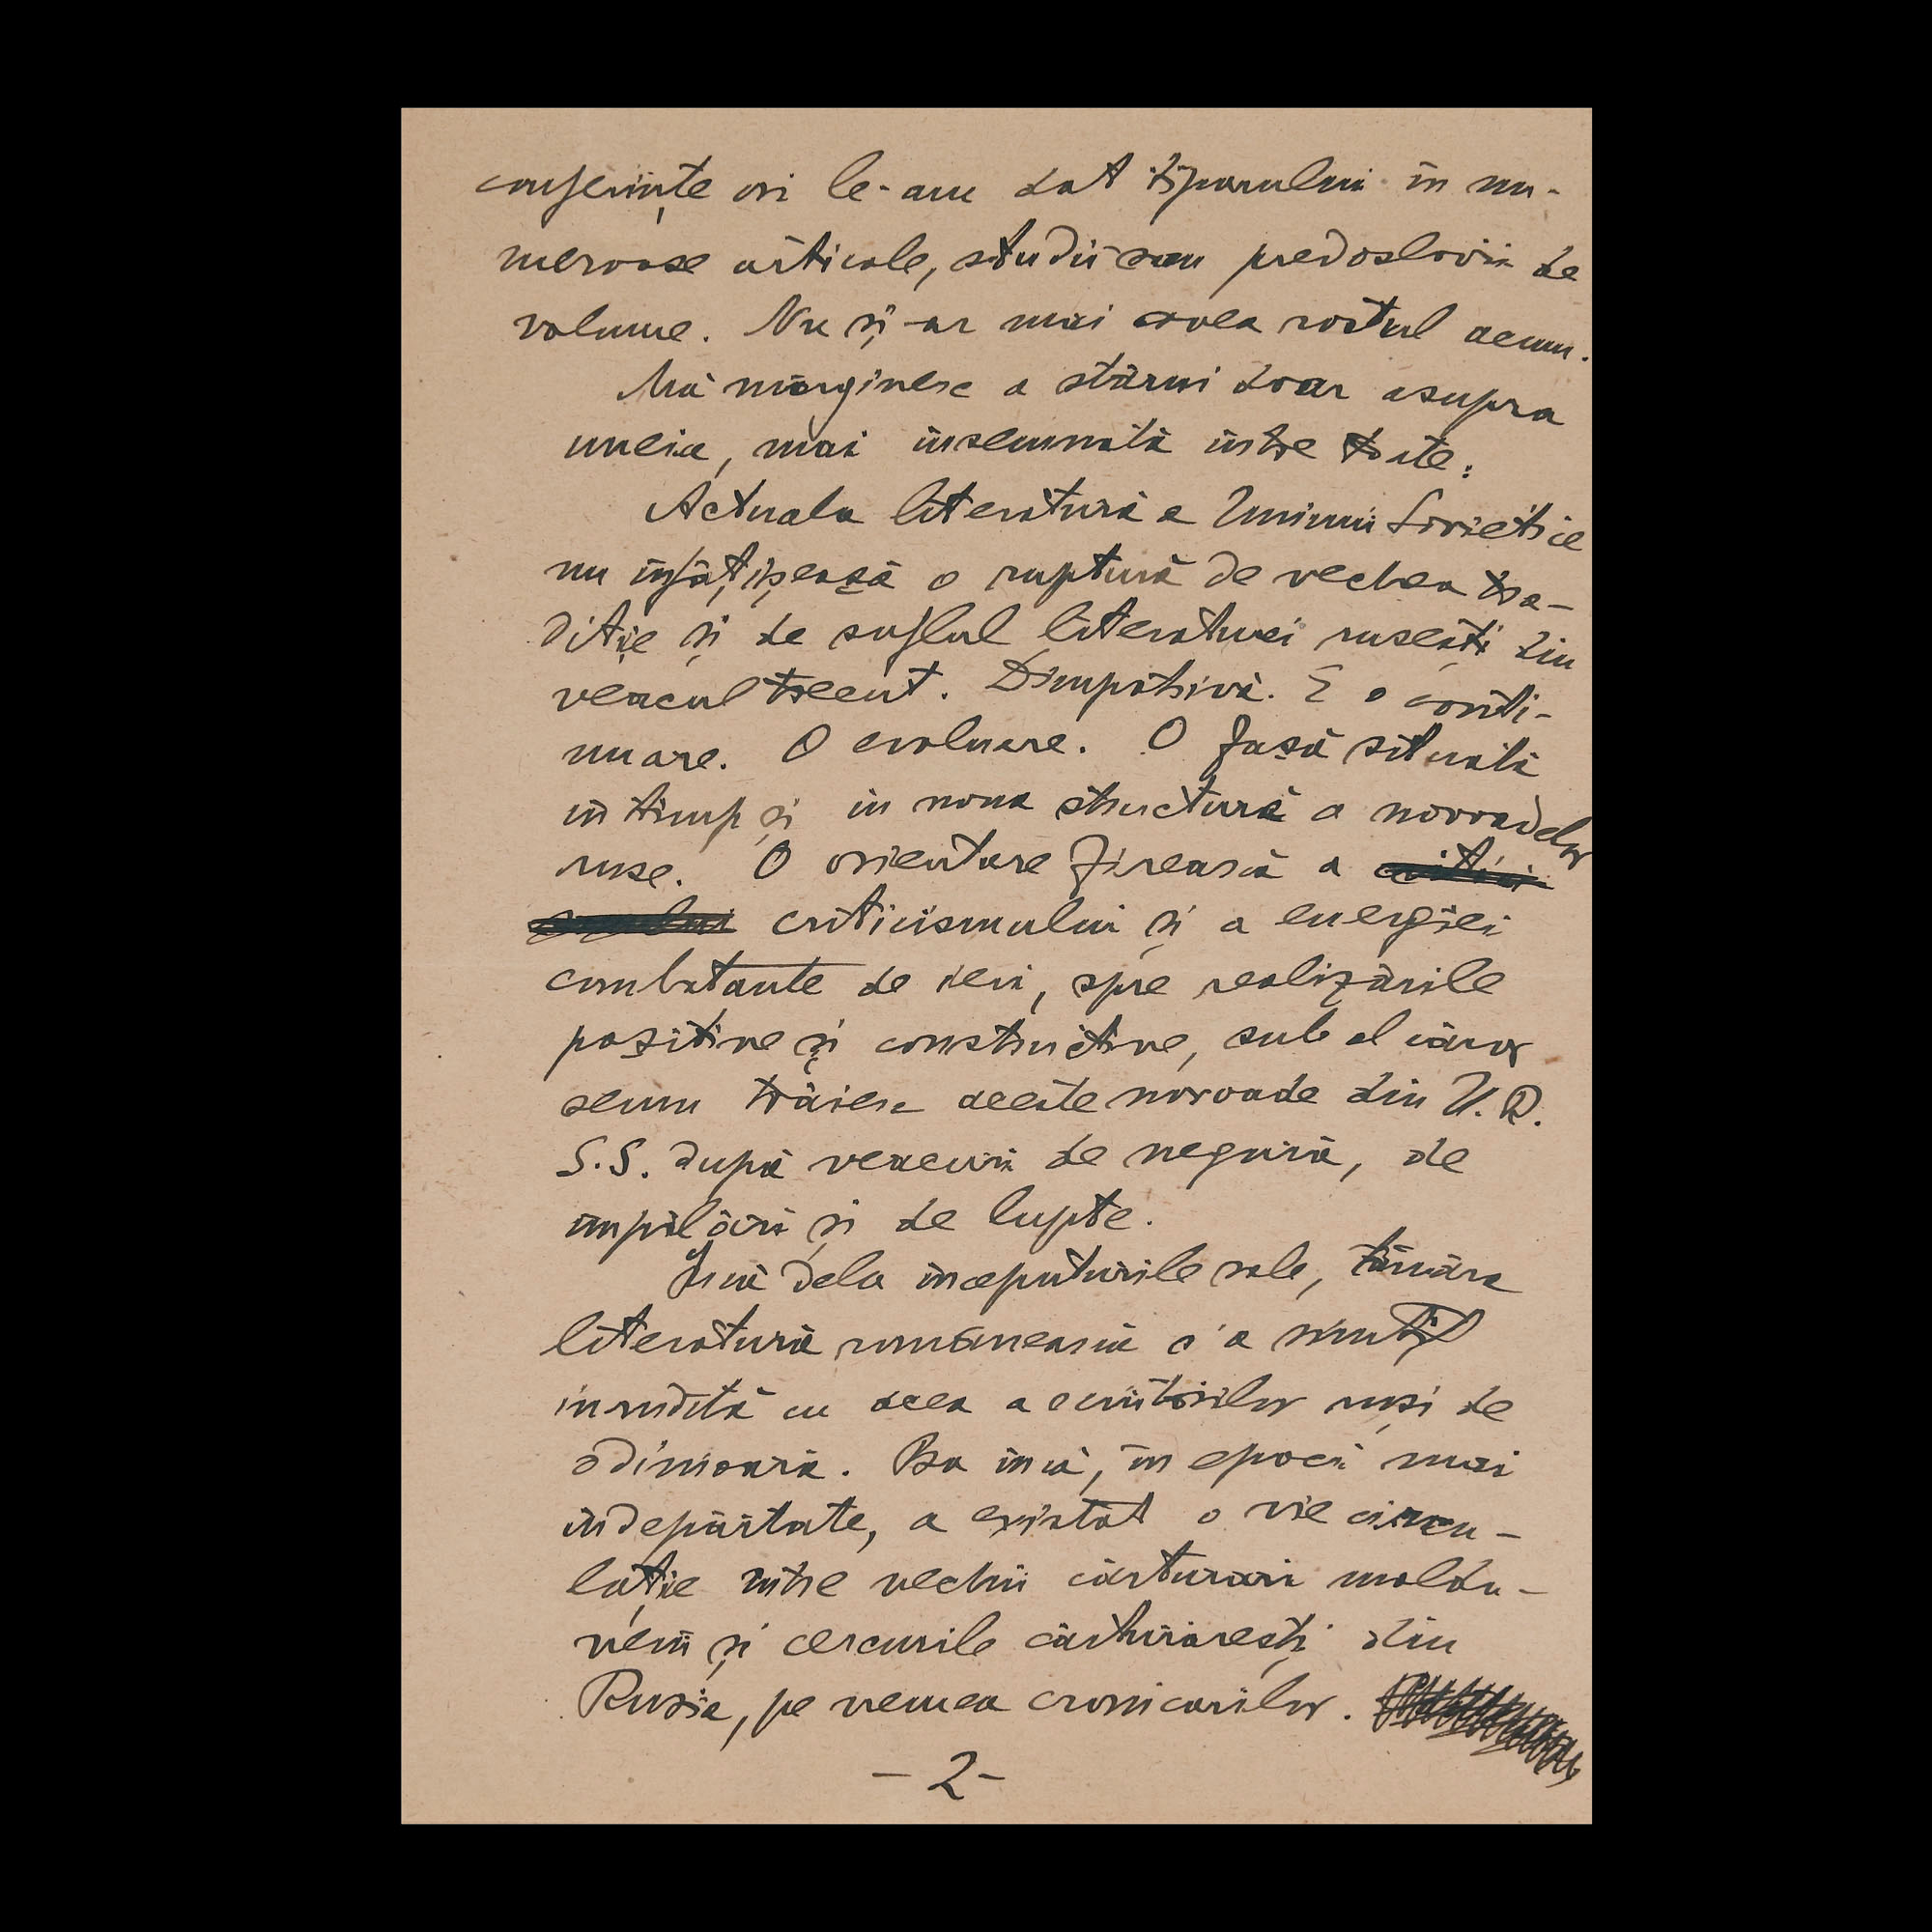 conferințe ori le-am dat tiparului în nu-
meroase articole, studii sau predoslovii de
volume. Nu și-ar mai avea rostul acum.
Mă mărginesc a stărui doar asupra
uneia, mai însemnată între toate:
Actuala literatură a Uniunii Sovietice
nu înfățișează o ruptură de vechea tra-
diție și de suflul literaturei rusești din
veacul trecut. Dimpotrivă. E o conti-
nuare. O evoluare. O fază situată
în timp și în noua structură a noroadelor
ruse. O orientare firească a
criticismului și a energiei
combatante de ieri, spre realizările
pozitive și constructive, sub al căror
semn trăiesc aceste noroade din U.R.
S.S. după veacuri de negură, de
împilări și de lupte.
Încă dela începuturile sale, tânăra
literatură românească s'a simțit
înrudită cu acea a scriitorilor ruși de
odinioară. Ba încă, în epoci mai
îndepărtate, a existat o vie circu-
lație între vechii cărturari moldo-
veni și cercurile cărturărești din
Rusia, pe vremea cronicarilor.
-2-